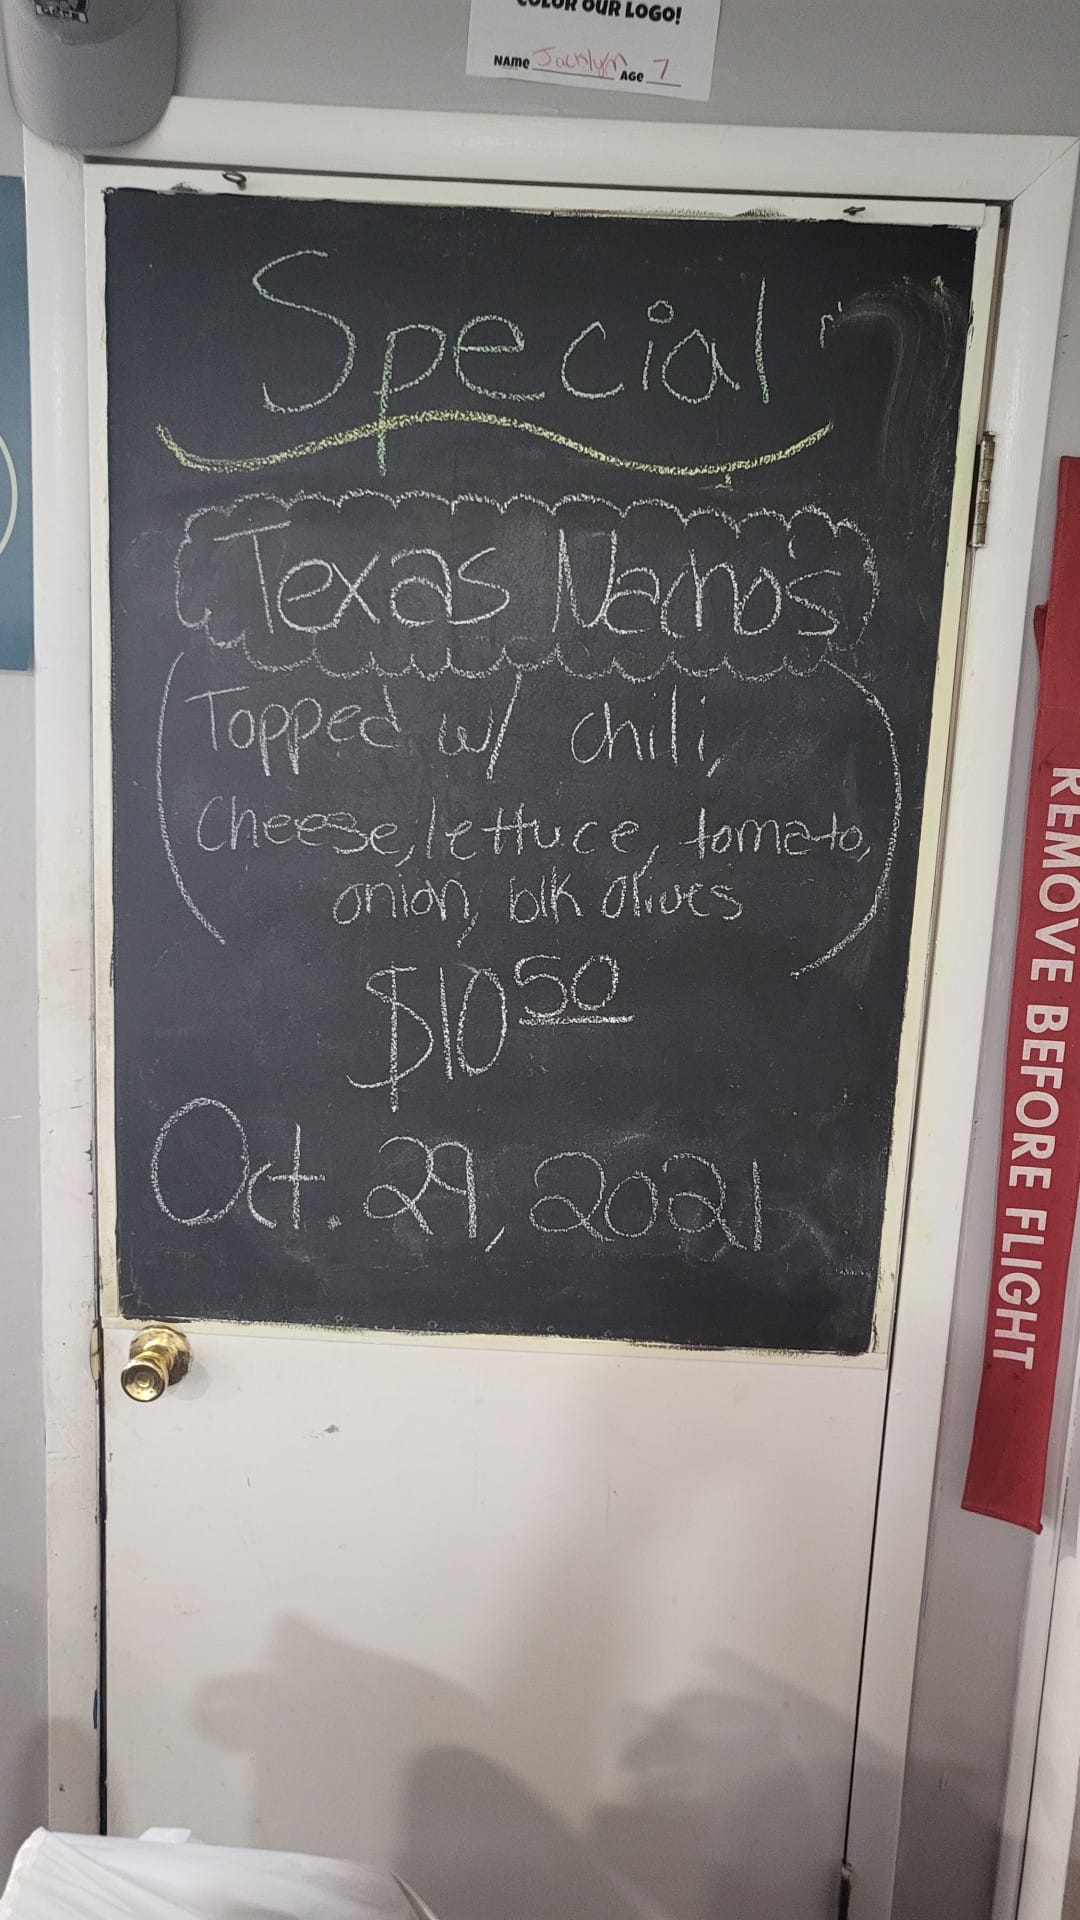 COLOR OUR LOGO!
NAME Jacklyn AGE 7
Special
Texas Nachos
(Topped w/ chili,
Cheese, lettuce, tomato,
onion, blk olives)
$10 50
Oct. 29, 2021
REMOVE BEFORE FLIGHT